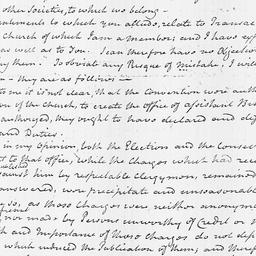 other Societies, to which we belong -
uments to which you allude, relate to Transac
Church of which I am a Member; and I have
as well as to You. I can therefore have no Objection
them. To obviate any Risque of mistake, I will
- they are as follows -
to me it is not clear, that the Convention were auth
of the Church, to create the office of assistant Bis
authorized, they ought to have declared and
and Duties.
in my Opinion, both the Election and the Consec
to that office, while the Charges which had
against him by respectable Clergymen, remained
answered, were precipitate and unseasonable
so, as those Charges were neither anonymo
nor made by Persons unworthy of Credit or
and Importance of those Charges do not dep
which induced the Publication of them; and